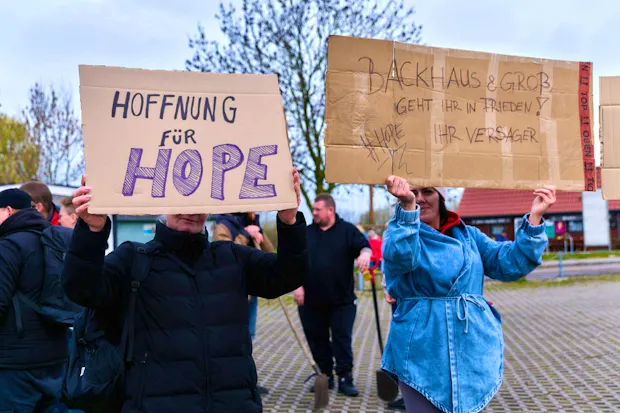 HOFFNUNG
FÜR
HOPE
BACKHAUS & GROß
GEHT IHR IN FRIEDEN!
#HOPE
IHR VERSAGER